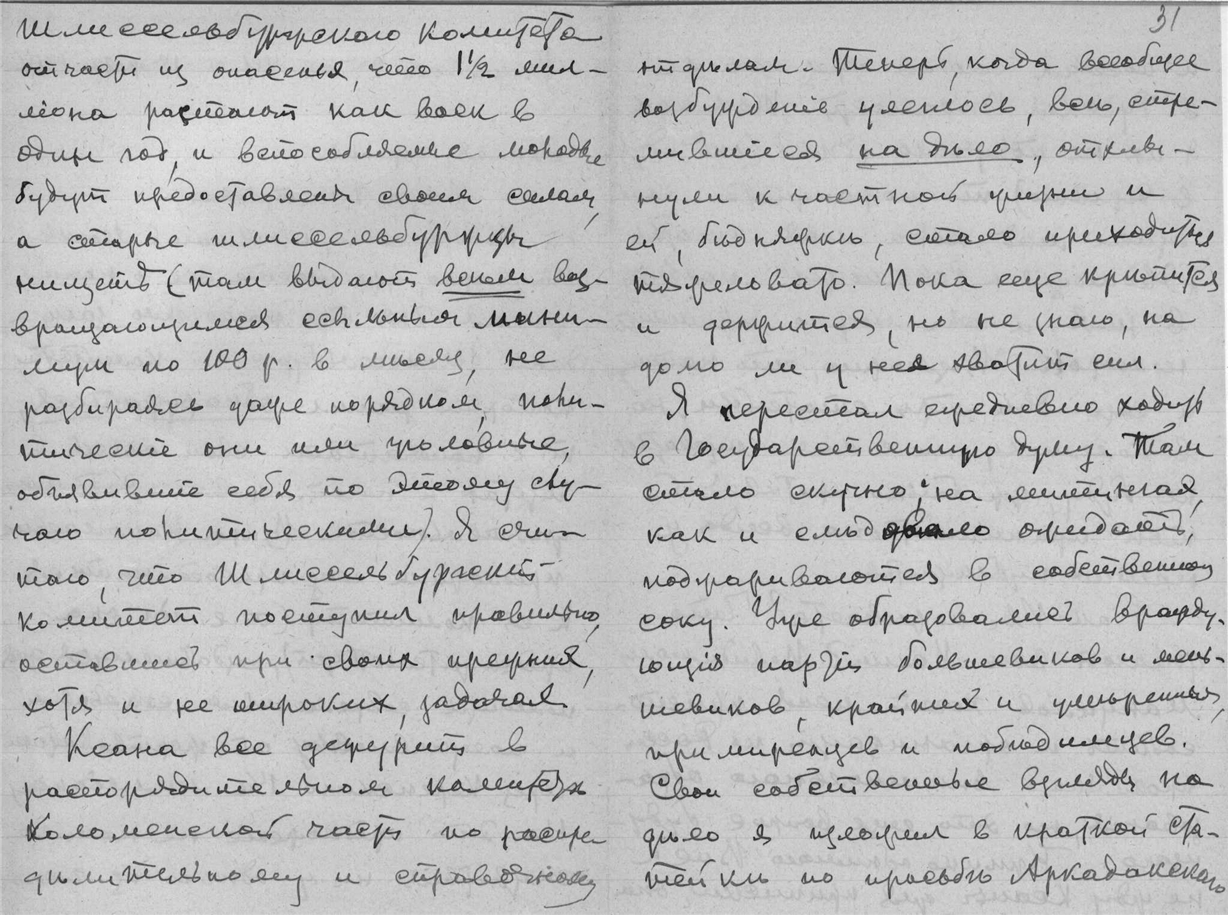 Шлиссельбургского Комитета
отчасти из опасенья, что 1½ мил-
лiона растают как воск в
один год, и вспособляемые молодые
будут предоставлены своим силам,
а старые шлиссельбуржцы
нищетѣ (там выдают всѣм воз-
вращающимся ссыльным мини-
мум по 100 р. в мѣсяц, не
разбираясь даже порядком, поли-
тическiе они или уголовные,
объявившiе себя по этому слу-
чаю политическими). Я счи-
таю, что Шлиссельбургскiй
комитет поступил правильно,
оставшись при своих прежних,
хотя и не широких, задачах.
Ксана все дежурит в
распорядительном комитетѣ
Коломенской части по распре
дѣлительному и справочному
31
отдѣлам. Теперь, когда всеобщее
возбужденiе улеглось, всѣ, стре-
мившiеся на дѣло, отхлы-
нули к частной жизни и
ей, бѣдняжкѣ, стало приходиться
тяжеловато. Пока еще крѣпится
и держится, но не знаю, на
долго ли у нея хватит сил.
Я перестал ежедневно ходить
в Государственную думу. Там
стало скучно: на митингах,
как и слѣдовало ожидать,
поджариваются в собственном
соку. Уже образовались вражду-
ющiя партiи большевиков и мень-
шевиков, крайних и умѣренных,
примиренцев и побѣдимцев.
Свои собственные взгляды на
дѣло я изложил в краткой ста-
тейкѣ по просьбѣ Аркадакского